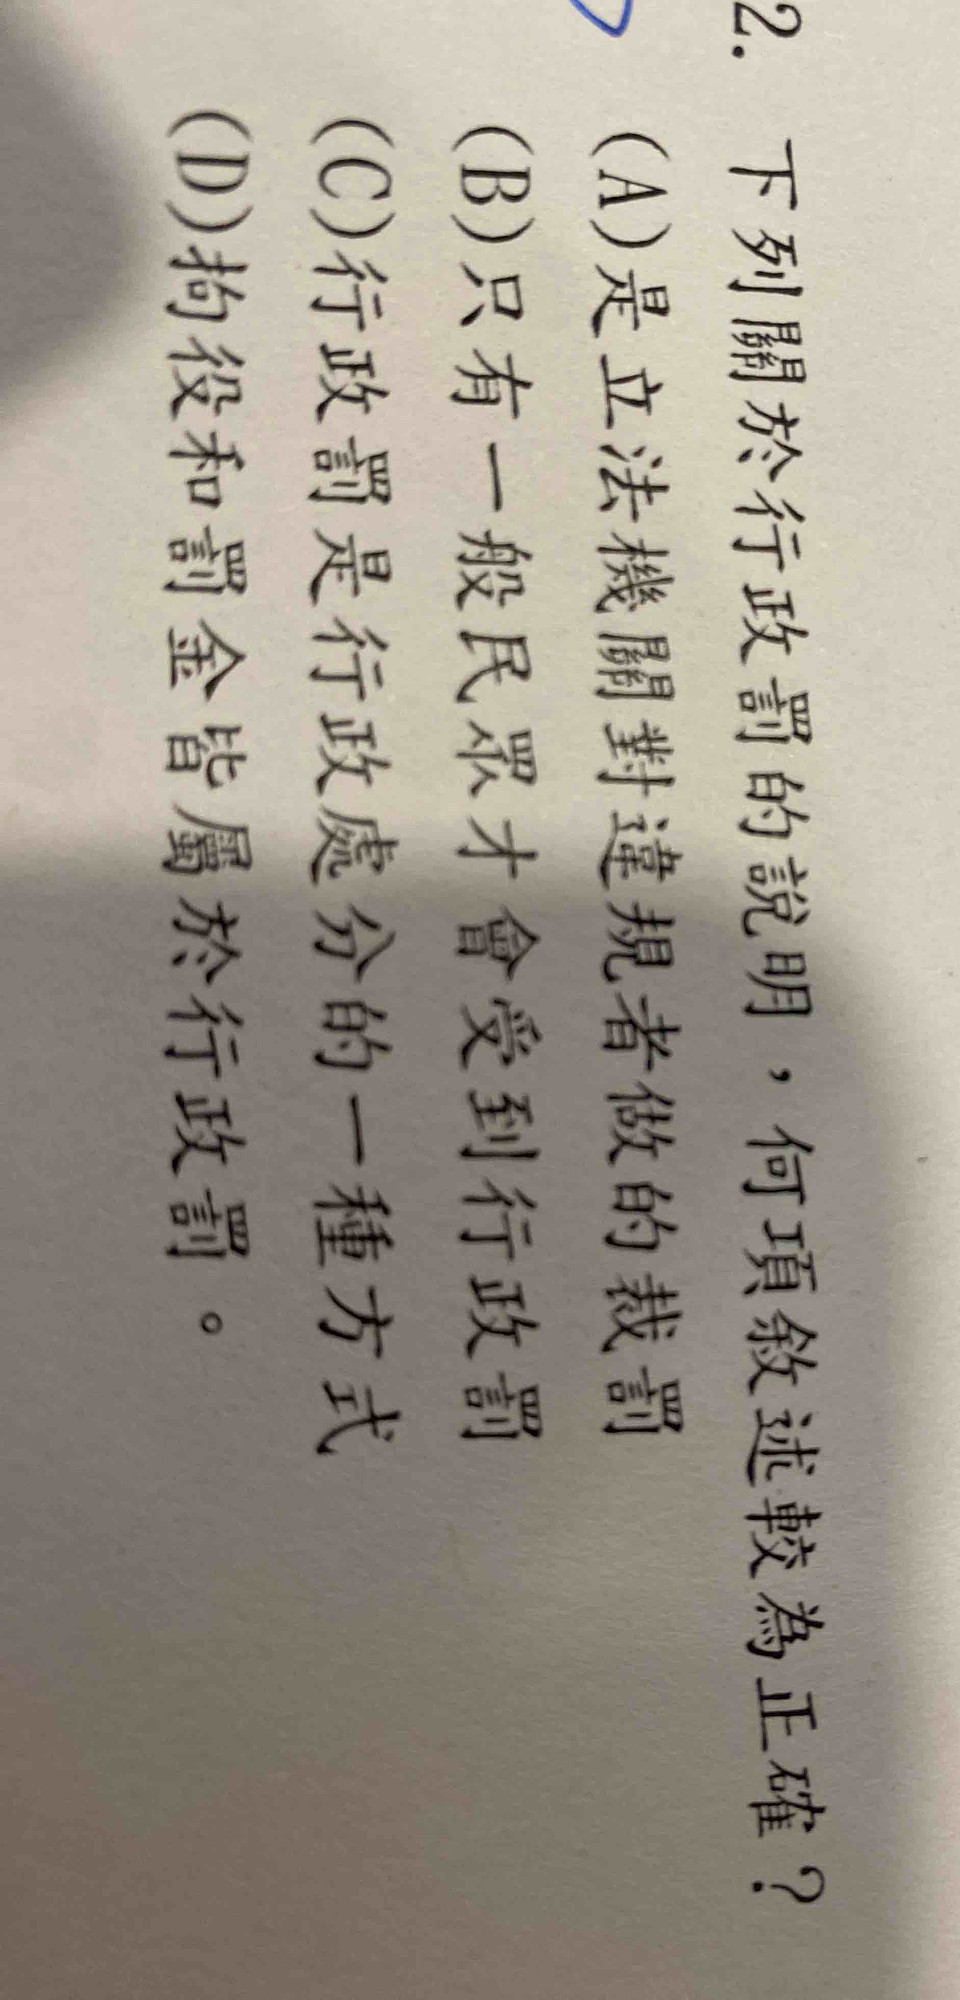 2. 下列關於行政罰的說明，何項敘述較為正確？
(A)是立法機關對違規者做的裁罰
(B)只有一般民眾才會受到行政罰
(C)行政罰是行政處分的一種方式
(D)拘役和罰金皆屬於行政罰。